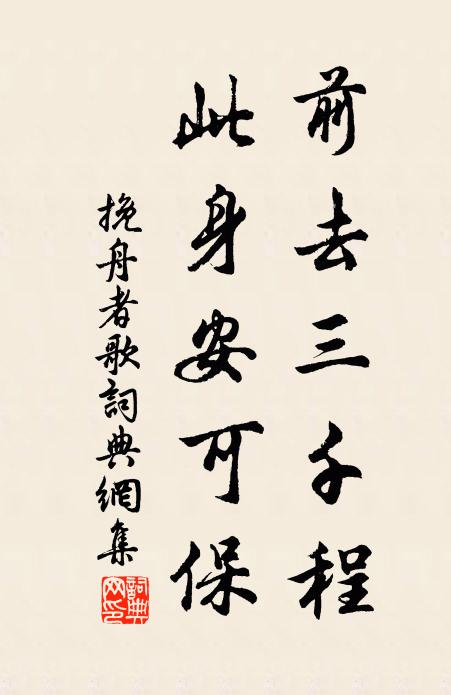 前去三千程
此身安可保
挽舟者歌詞典網集
詞典網印